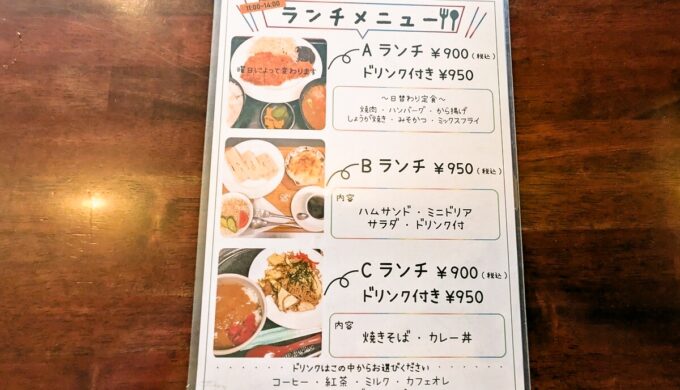 11:00~14:00
ランチメニュー
A ランチ ￥900 (税込)
ドリンク付き ￥950
曜日によって変わります
～日替わり定食～
焼肉・ハンバーグ・から揚げ
しょうが焼き・みそかつ・ミックスフライ
B ランチ ￥950 (税込)
内容
ハムサンド・ミニドリア
サラダ・ドリンク付
C ランチ ￥900 (税込)
ドリンク付き ￥950
内容
焼きそば・カレー丼
ドリンクはこの中からお選びください
コーヒー・紅茶・ミルク・カフェオレ